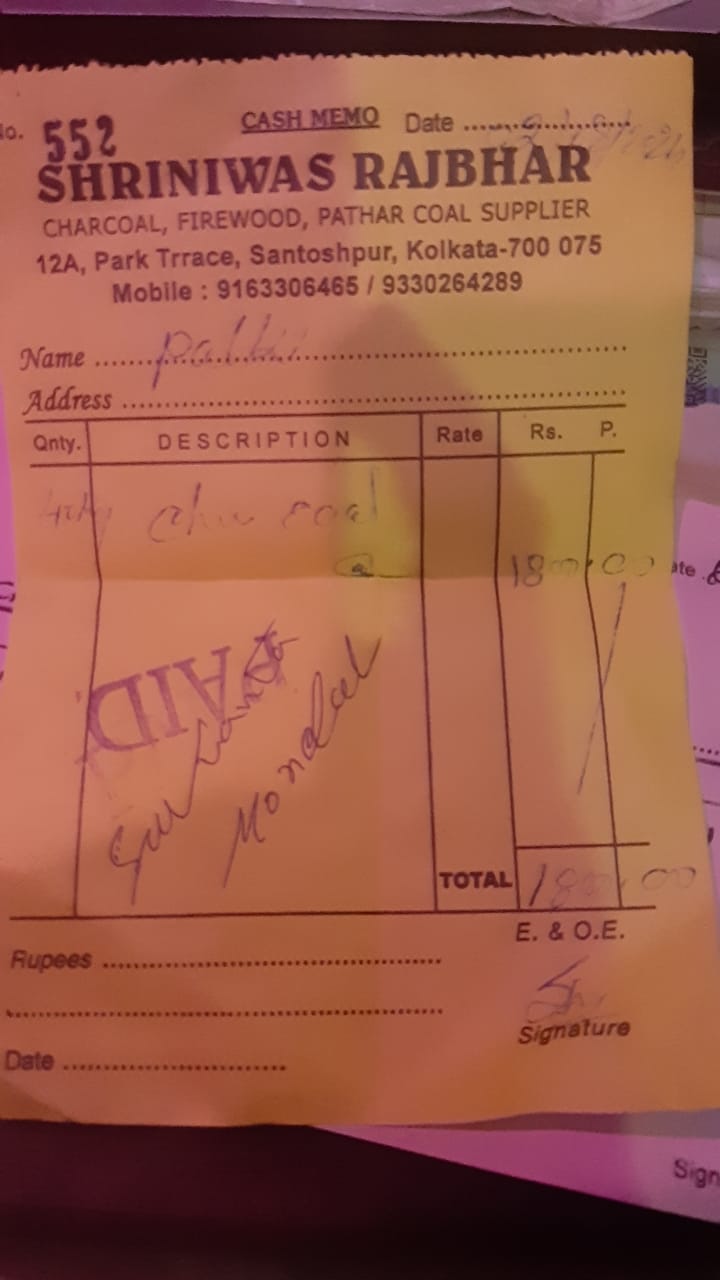 No. 552 CASH MEMO Date
SHRINIWAS RAJBHAR
CHARCOAL, FIREWOOD, PATHAR COAL SUPPLIER
12A, Park Trrace, Santoshpur, Kolkata-700 075
Mobile : 9163306465 / 9330264289
Name
Address
Qnty. DESCRIPTION Rate Rs. P.
coal
180.00
PAID
Mondal
TOTAL 180.00
E. & O.E.
Rupees
Signature
Date
Sign